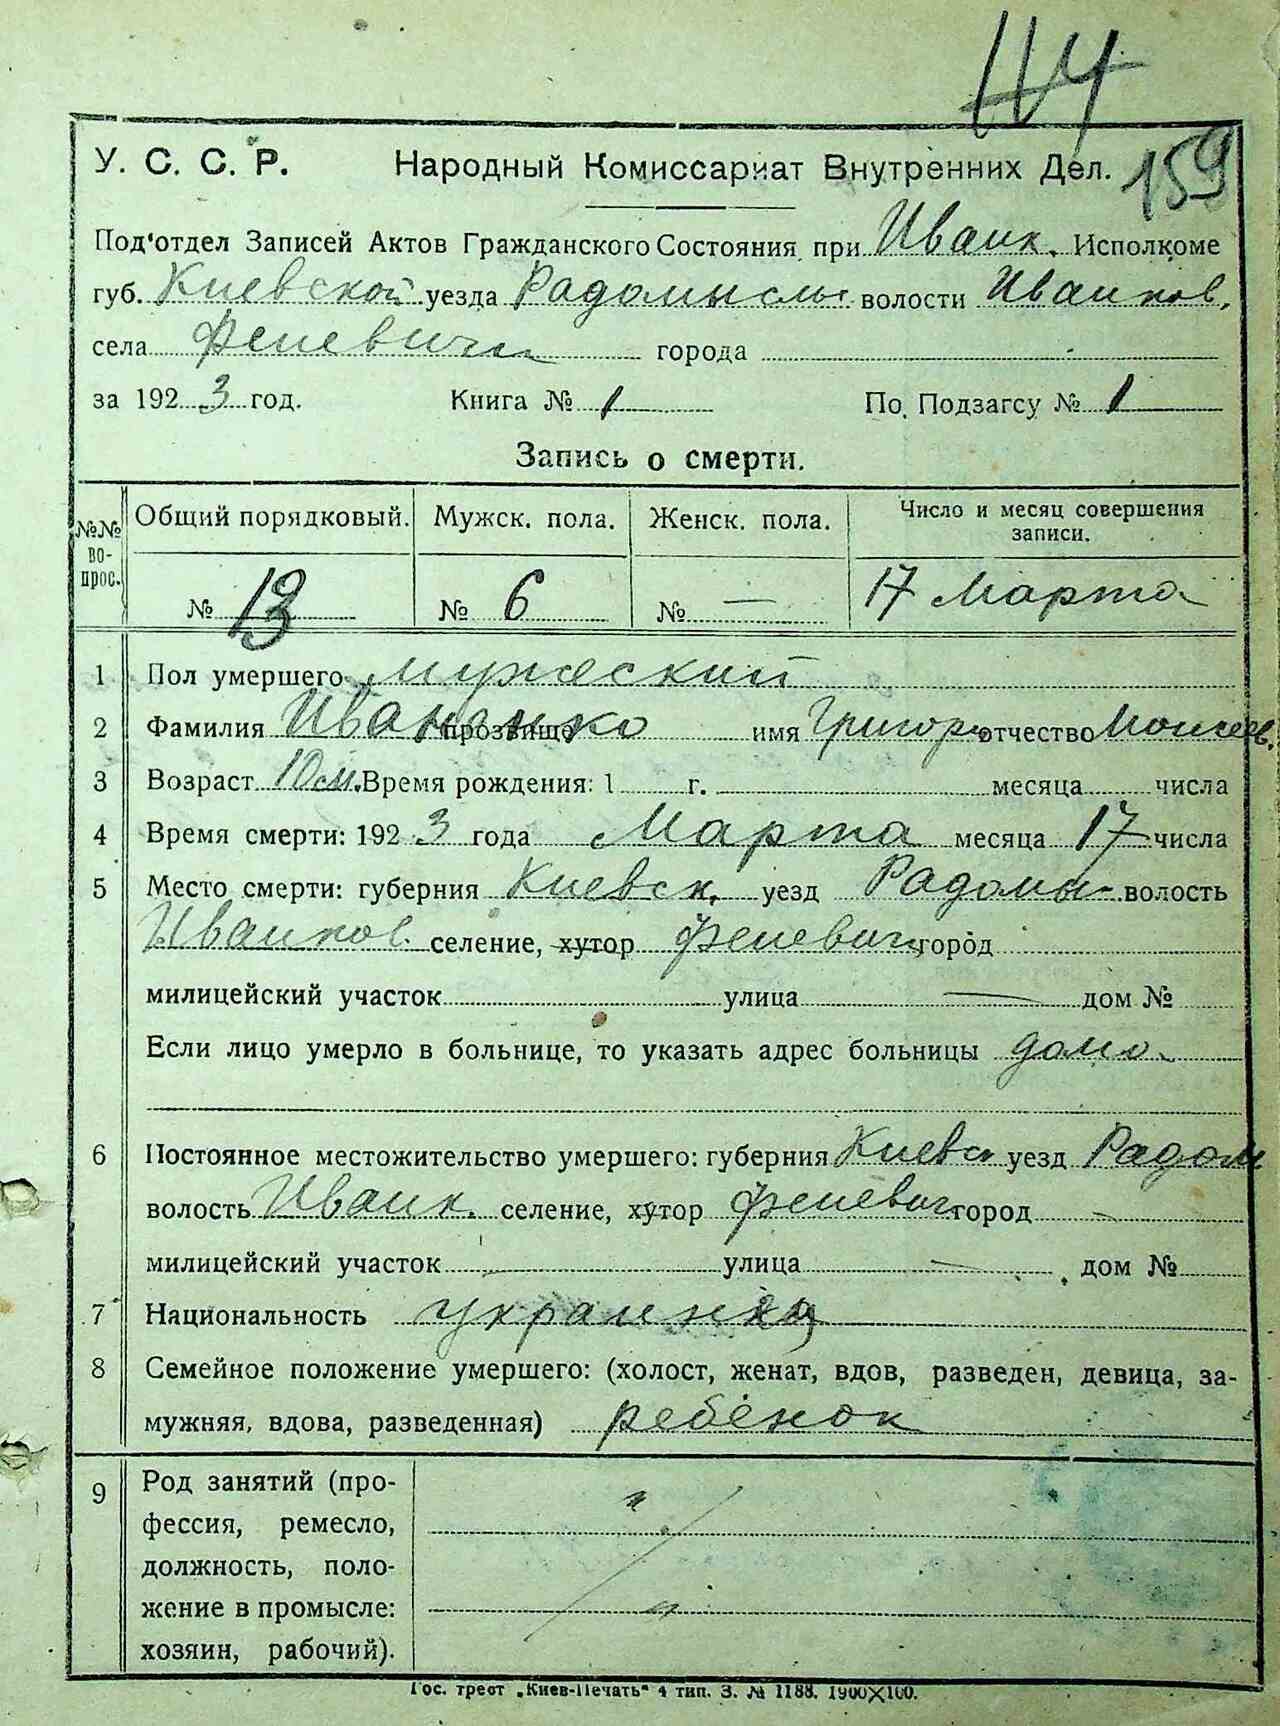 114
У. С. С. Р. Народный Комиссариат Внутренних Дел. 159
Под'отдел Записей Актов Гражданского Состояния при Иванк. Исполкоме
губ. Киевской уезда Радомысль волости Иванков.
села Феневичи города
за 1923 год. Книга № 1 По Подзагсу № 1
Запись о смерти.
№№ вопрос. Общий порядковый. Мужск. пола. Женск. пола. Число и месяц совершения записи.
№ 13 № 6 № — 17 Марта
1 Пол умершего мужеский
2 Фамилия Иваненко прозвище имя Григор отчество Моисеев.
3 Возраст 10 м. Время рождения: 1 г. месяца числа
4 Время смерти: 1923 года Марта месяца 17 числа
5 Место смерти: губерния Киевск. уезд Радомы волость
Иванков. селение, хутор Феневичи город
милицейский участок улица — дом №
Если лицо умерло в больнице, то указать адрес больницы дома
6 Постоянное местожительство умершего: губерния Киевс уезд Радом
волость Иванк. селение, хутор Феневич город —
милицейский участок — улица — дом №
7 Национальность
8 Семейное положение умершего: (холост, женат, вдов, разведен, девица, за-
мужняя, вдова, разведенная) ребёнок
9 Род занятий (про-
фессия, ремесло,
должность, поло-
жение в промысле:
хозяин, рабочий).
Гос. трест „Киев-Печать" 4 тип. З. № 1188. 1900×100.